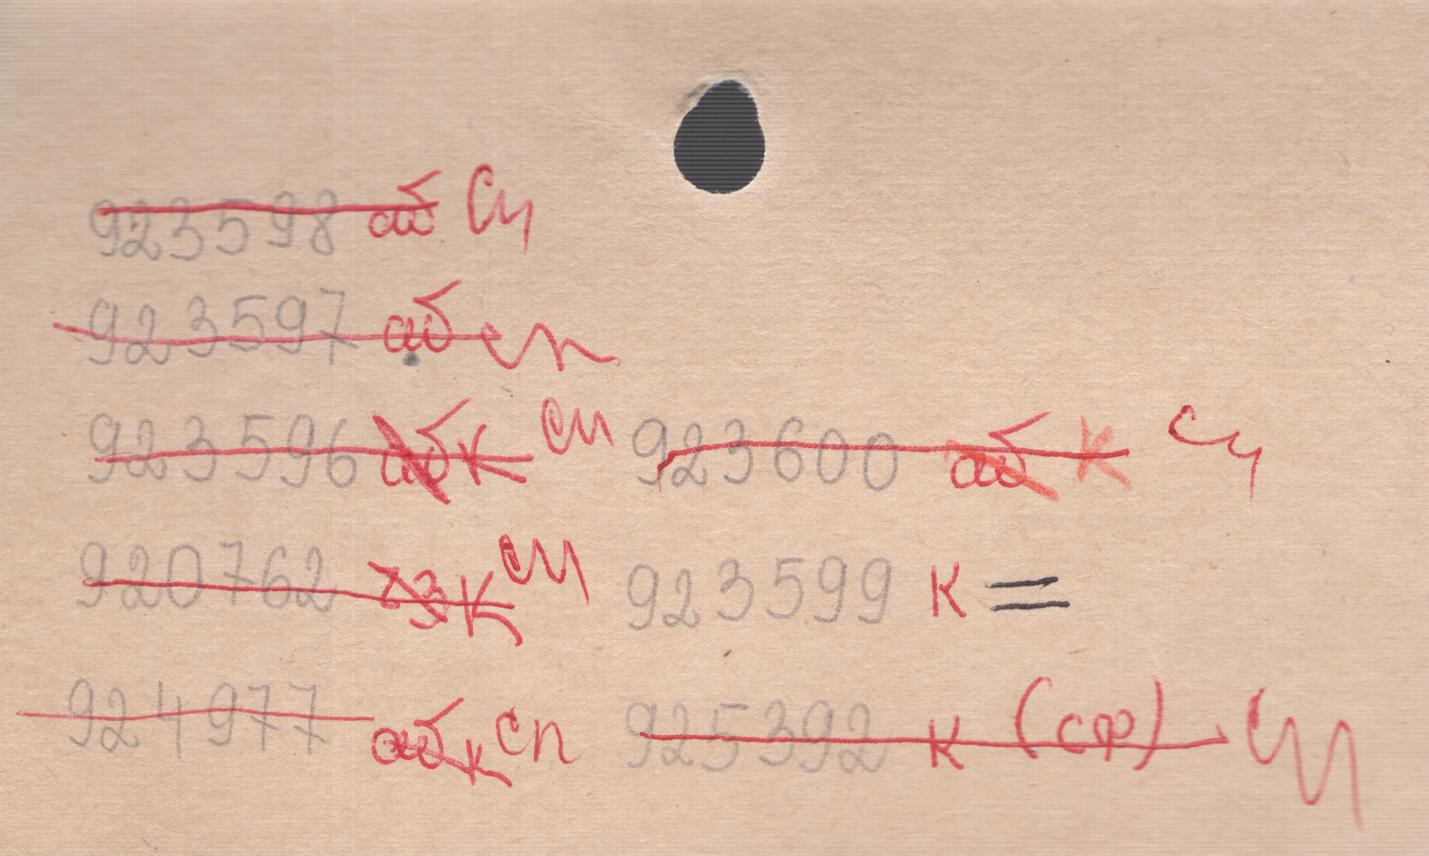 923598 аб Сп
923597 аб сп
923596 аб К сп 923600 аб К сп
920762 чз К сп 923599 К =
924977 аб к сп 925392 К (ср) сп